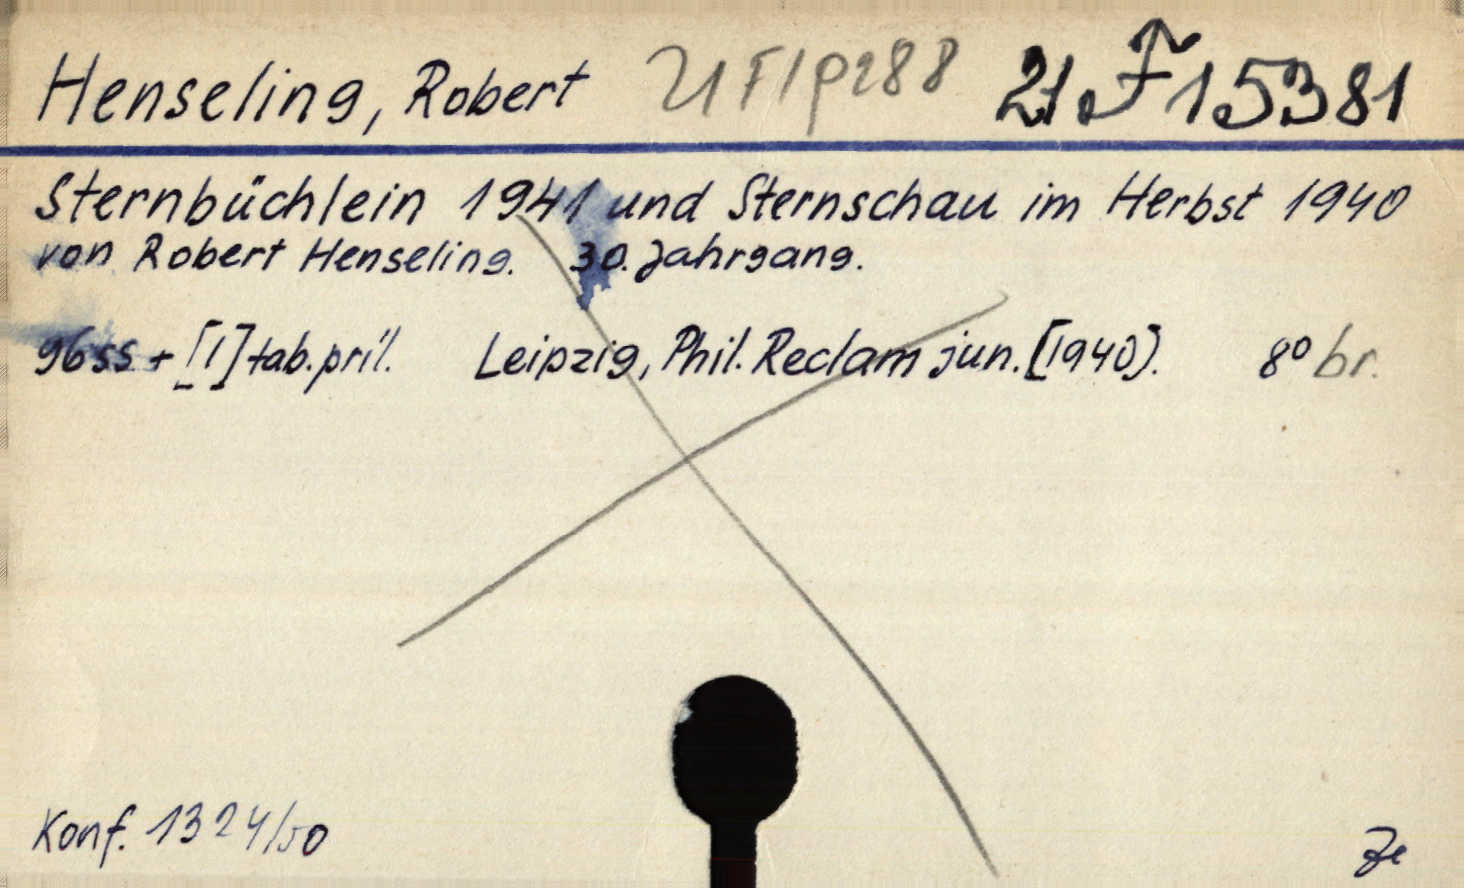 Henseling, Robert 21 F 15381
Sternbüchlein 1941 und Sternschau im Herbst 1940
von Robert Henseling. 30. Jahrgang.
96 ss + [1] tab. příl. Leipzig, Phil. Reclam jun. [1940]. 8° br.
Konf. 1324/50